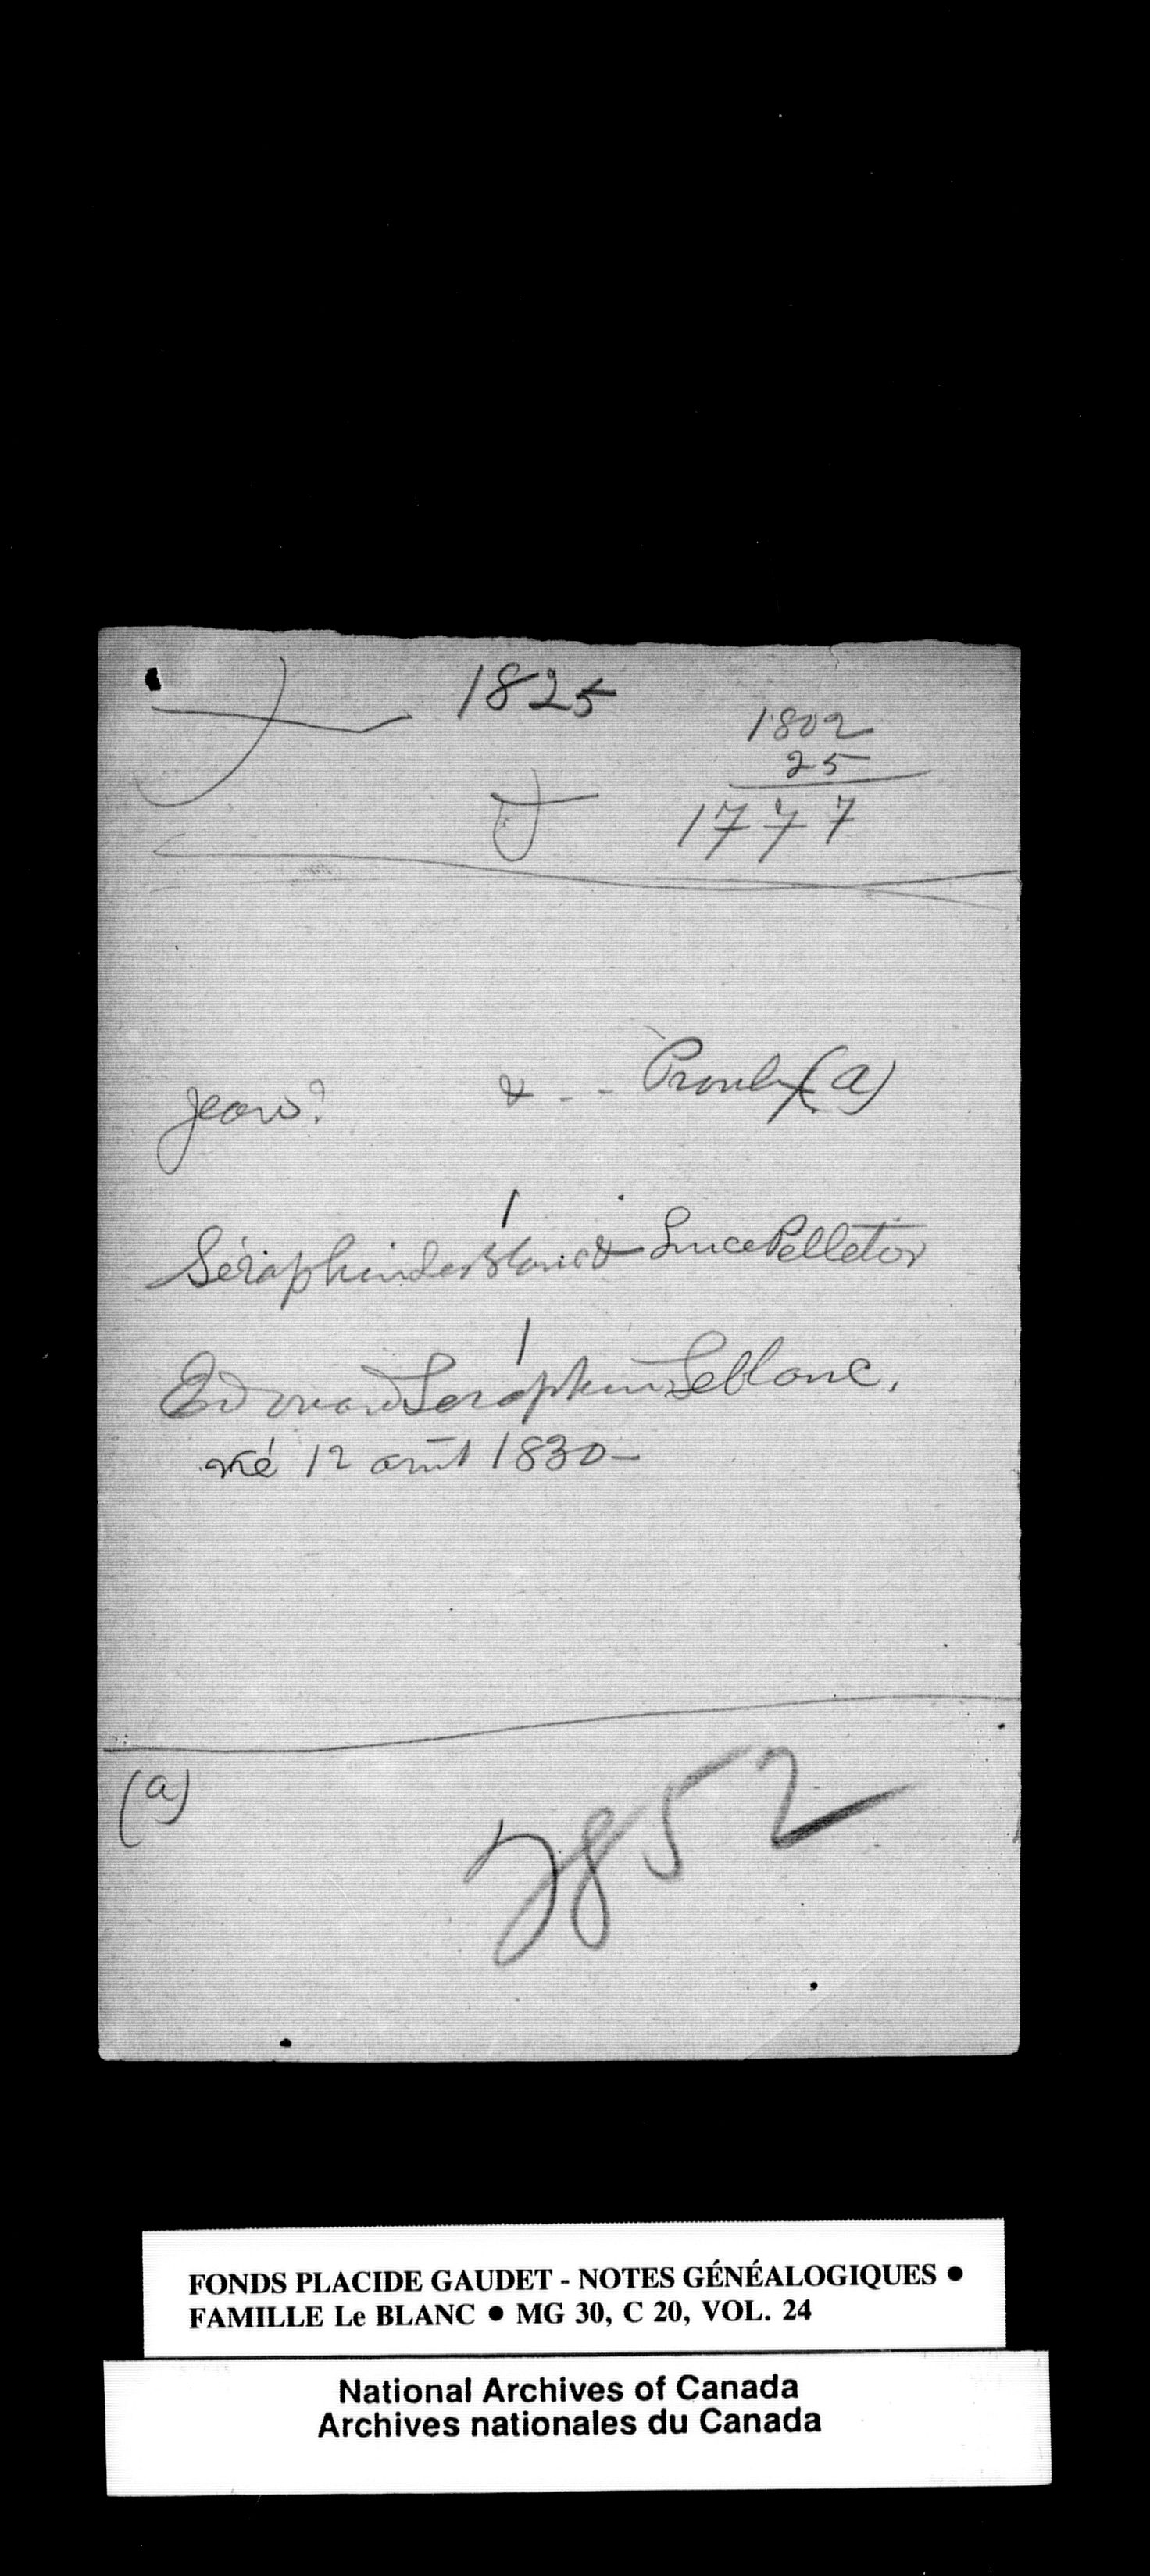 1825
1802
25
1777
Jean? & - - Proulx (a)
Séraphin LeBlanc & Luce Pelletier
Edouard Séraphin Leblanc.
né 12 août 1830-
(a)
2852
FONDS PLACIDE GAUDET - NOTES GÉNÉALOGIQUES ●
FAMILLE Le BLANC ● MG 30, C 20, VOL. 24
National Archives of Canada
Archives nationales du Canada